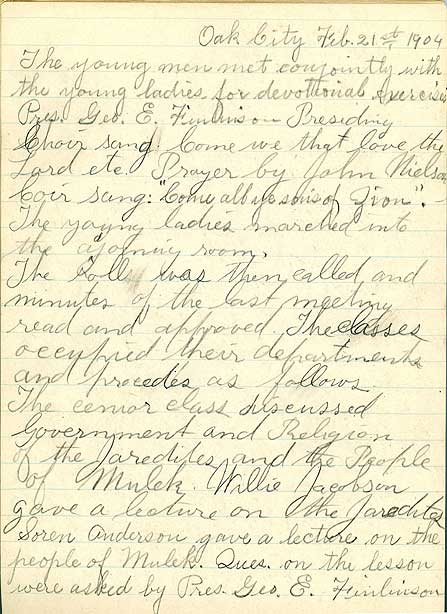 Oak City Feb. 21st 1904
The young men met conjointly with
the young ladies for devotional Exercise
Pres. Geo. E. Finlinson Presiding
Choir sang. Come we that love the
Lord etc. Prayer by John Nielson
Coir sang: "Come all ye sons of Zion".
The young ladies marched into
the ajoining room.
The Rolls was then called and
minutes of the last meeting
read and approved. The classes
occupied their departments
and procedes as follows
The cenior class discussed
Government and Religion
of the Jaredites and the People
of Mulek. Willie Jacobson
gave a lecture on the Jaredites
Soren Anderson gave a lecture on the
people of Mulek. Ques. on the lesson
were asked by Pres. Geo. E. Finlinson